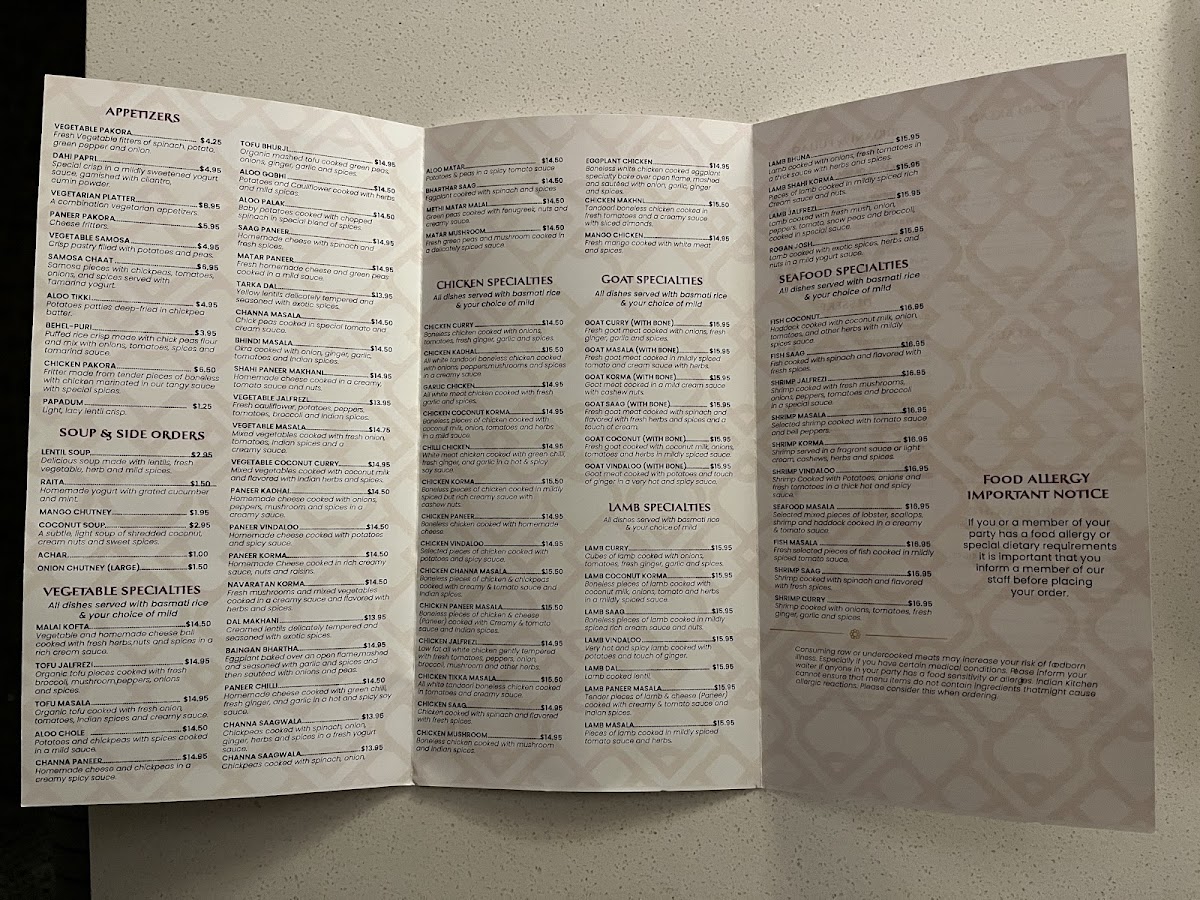 APPETIZERS
VEGETABLE PAKORA $4.25
Fresh Vegetable fitters of spinach, potato,
green pepper and onion.
DAHI PAPRI $4.95
Special crisp in a mildly sweetened yogurt
sauce, garnished with cilantro,
cumin powder.
VEGETARIAN PLATTER $8.95
A combination vegetarian appetizers.
PANEER PAKORA $5.95
Cheese fritters.
VEGETABLE SAMOSA $4.95
Crisp pastry filled with potatoes and peas.
SAMOSA CHAAT $6.95
Samosa pieces with chickpeas, tomatoes,
onions, and spices served with
Tamarind yogurt.
ALOO TIKKI $4.95
Potatoes patties deep-fried in chickpea
batter.
BEHEL-PURI $3.95
Puffed rice crisp made with chick peas flour
and mix with onions, tomatoes, spices and
tomarind sauce.
CHICKEN PAKORA $6.50
Fritter made from tender pieces of boneless
with chicken marinated in our tangy sauce
with special spices.
PAPADUM $1.25
Light, lacy lentil crisp.
SOUP & SIDE ORDERS
LENTIL SOUP $2.95
Delicious soup made with lentils, fresh
vegetable, herb and mild spices.
RAITA $1.50
Homemade yogurt with grated cucumber
and mint.
MANGO CHUTNEY $1.95
COCONUT SOUP $2.95
A subtle, light soup of shredded coconut,
cream nuts and sweet spices.
ACHAR $1.00
ONION CHUTNEY (LARGE) $1.50
VEGETABLE SPECIALTIES
All dishes served with basmati rice
& your choice of mild
MALAI KOFTA $14.50
Vegetable and homemade cheese ball
cooked with fresh herbs,nuts and spices in a
rich cream sauce.
TOFU JALFREZI $14.95
Organic tofu pieces cooked with fresh
broccoli, mushroom,peppers, onions
and spices.
TOFU MASALA $14.95
Organic tofu cooked with fresh onion,
tomatoes, Indian spices and creamy sauce.
ALOO CHOLE $14.50
Potatoes and chickpeas with spices cooked
in a mild sauce.
CHANNA PANEER $14.95
Homemade cheese and chickpeas in a
creamy spicy sauce.
TOFU BHURJI $14.95
Organic mashed tofu cooked green peas,
onions, ginger, garlic and spices.
ALOO GOBHI $14.50
Potatoes and Cauliflower cooked with herbs
and mild spices.
ALOO PALAK $14.50
Baby potatoes cooked with chopped
spinach in special blend of spices.
SAAG PANEER $14.95
Homemade cheese with spinach and
fresh spices.
MATAR PANEER $14.95
Fresh homemade cheese and green peas
cooked in a mild sauce.
TARKA DAL $13.95
Yellow lentils delicately tempered and
seasoned with exotic spices.
CHANNA MASALA $14.50
Chick peas cooked in special tomato and
cream sauce.
BHINDI MASALA $14.50
Okra cooked with onion, ginger, garlic,
tomatoes and Indian spices.
SHAHI PANEER MAKHANI $14.95
Homemade cheese cooked in a creamy,
tomato sauce and nuts.
VEGETABLE JALFREZI $13.95
Fresh cauliflower, potatoes, peppers,
tomatoes, broccoli and Indian spices.
VEGETABLE MASALA $14.75
Mixed vegetables cooked with fresh onion,
tomatoes, Indian spices and a
creamy sauce.
VEGETABLE COCONUT CURRY $14.95
Mixed vegetables cooked with coconut milk
and flavored with Indian herbs and spices.
PANEER KADHAI $14.50
Homemade cheese cooked with onions,
peppers, mushroom and spices in a
creamy sauce.
PANEER VINDALOO $14.50
Homemade cheese cooked with potatoes
and spicy sauce.
PANEER KORMA $14.50
Homemade Cheese cooked in rich creamy
sauce, nuts and raisins.
NAVARATAN KORMA $14.50
Fresh mushrooms and mixed vegetables
cooked in a creamy sauce and flavored with
herbs and spices.
DAL MAKHANI $13.95
Creamed lentils delicately tempered and
seasoned with exotic spices.
BAINGAN BHARTHA $14.95
Eggplant baked over an open flame,mashed
and seasoned with garlic and spices and
then sautéed with onions and peas.
PANEER CHILLI $14.95
Homemade cheese cooked with green chili,
fresh ginger, and garlic in a hot and spicy soy
sauce.
CHANNA SAAGWALA $13.95
Chickpeas cooked with spinach, onion,
ginger, herbs and spices in a fresh yogurt
sauce.
CHANNA SAAGWALA $13.95
Chickpeas cooked with spinach, onion,
ALOO MATAR $14.50
Potatoes & peas in a spicy tomato sauce
BHARTHAR SAAG $14.50
Eggplant cooked with spinach and spices
METHI MATAR MALAI $14.50
Green peas cooked with fenugreek, nuts and
creamy sauce.
MATAR MUSHROOM $14.50
Fresh green peas and mushroom cooked in
a delicately spiced sauce
CHICKEN SPECIALTIES
All dishes served with basmati rice
& your choice of mild
CHICKEN CURRY $14.50
Boneless chicken cooked with onions,
tomatoes, fresh ginger, garlic and spices.
CHICKEN KADHAI $15.50
All white tandoori boneless chicken cooked
with onions, peppers,mushrooms and spices
in a creamy sauce.
GARLIC CHICKEN $14.95
All white meat chicken cooked with fresh
garlic and spices.
CHICKEN COCONUT KORMA $14.95
Boneless pieces of chicken cooked with
coconut milk, onion, tomatoes and herbs
in a mild sauce.
CHILLI CHICKEN $14.95
White meat chicken cooked with green chili,
fresh ginger, and garlic in a hot & spicy
soy sauce.
CHICKEN KORMA $15.50
Boneless pieces of chicken cooked in mildly
spiced but rich creamy sauce with
cashew nuts.
CHICKEN PANEER $14.95
Boneless chicken cooked with homemade
cheese.
CHICKEN VINDALOO $14.95
Selected pieces of chicken cooked with
potatoes and spicy sauce.
CHICKEN CHANNA MASALA $15.50
Boneless pieces of chicken & chickpeas
cooked with creamy & tomato sauce and
Indian spices.
CHICKEN PANEER MASALA $15.50
Boneless pieces of chicken & cheese
(Paneer) cooked with Creamy & tomato
sauce and Indian spices.
CHICKEN JALFREZI $14.95
Low fat all white chicken gently tempered
with fresh tomatoes, peppers, onion,
broccoli, mushroom and other herbs.
CHICKEN TIKKA MASALA $15.50
All white tandoori boneless chicken cooked
in tomatoes and creamy sauce.
CHICKEN SAAG $14.95
Chicken cooked with spinach and flavored
with fresh spices.
CHICKEN MUSHROOM $14.95
Boneless chicken cooked with mushroom
and Indian spices.
EGGPLANT CHICKEN $14.95
Boneless white chicken cooked eggplant
specialty bake over open flame, mashed
and sautéed with onion, garlic, ginger
and spices.
CHICKEN MAKHNI $15.50
Tandoori boneless chicken cooked in
fresh tomatoes and a creamy sauce
with sliced almonds.
MANGO CHICKEN $14.95
Fresh mango cooked with white meat
and spices.
GOAT SPECIALTIES
All dishes served with basmati rice
& your choice of mild
GOAT CURRY (WITH BONE) $15.95
Fresh goat meat cooked with onions, fresh
ginger, garlic and spices.
GOAT MASALA (WITH BONE) $15.95
Fresh goat meat cooked in mildly spiced
tomato and cream sauce with herbs.
GOAT KORMA (WITH BONE) $15.95
Goat meat cooked in a mild cream sauce
with cashew nuts.
GOAT SAAG (WITH BONE) $15.95
Fresh goat meat cooked with spinach and
flavored with fresh herbs and spices and a
touch of cream.
GOAT COCONUT (WITH BONE) $15.95
Fresh goat cooked with coconut milk, onions,
tomatoes and herbs in mildly spiced sauce.
GOAT VINDALOO (WITH BONE) $15.95
Goat meat cooked with potatoes and touch
of ginger in a very hot and spicy sauce.
LAMB SPECIALTIES
All dishes served with basmati rice
& your choice of mild
LAMB CURRY $15.95
Cubes of lamb cooked with onions,
tomatoes, fresh ginger, garlic and spices.
LAMB COCONUT KORMA $15.95
Boneless pieces of lamb cooked with
coconut milk, onions, tomato and herbs
in a mildly spiced sauce.
LAMB SAAG $15.95
Boneless pieces of lamb cooked in mildly
spiced rich cream sauce and nuts.
LAMB VINDALOO $15.95
Very hot and spicy lamb cooked with
potatoes and touch of ginger.
LAMB DAL $15.95
Lamb cooked lentil.
LAMB PANEER MASALA $15.95
Tender pieces of lamb & cheese (Paneer)
cooked with creamy & tomato sauce and
Indian spices.
LAMB MASALA $15.95
Pieces of lamb cooked in mildly spiced
tomato sauce and herbs.
LAMB BHUNA $15.95
Lamb cooked with onions, fresh tomatoes in
a thick sauce with herbs and spices.
LAMB SHAHI KORMA $15.95
Pieces of lamb cooked in mildly spiced rich
cream sauce and nuts.
LAMB JALFREZI $15.95
Lamb cooked with fresh mush, onion,
peppers, tomato, snow peas and broccoli,
cooked in special sauce.
ROGAN -JOSH $15.95
Lamb cooked with exotic spices, herbs and
nuts in a mild yogurt sauce.
SEAFOOD SPECIALTIES
All dishes served with basmati rice
& your choice of mild
FISH COCONUT $16.95
Haddock cooked with coconut milk, onion,
tomatoes, and other herbs with mildly
spices sauce.
FISH SAAG $16.95
Fish cooked with spinach and flavored with
fresh spices.
SHRIMP JALFREZI $16.95
Shrimp cooked with fresh mushrooms,
onions, peppers, tomatoes and broccoli
in a special sauce
SHRIMP MASALA $16.95
Selected shrimp cooked with tomato sauce
and bell peppers.
SHRIMP KORMA $16.95
Shrimp served in a fragrant sauce or light
cream, cashews, herbs and spices.
SHRIMP VINDALOO $16.95
Shrimp Cooked with Potatoes, onions and
fresh tomatoes in a thick hot and spicy
sauce.
SEAFOOD MASALA $18.95
Selected mixed pieces of lobster, scallops,
shrimp and haddock cooked in a creamy
& tomato sauce
FISH MASALA $16.95
Fresh selected pieces of fish cooked in mildly
spiced tomato sauce.
SHRIMP SAAG $16.95
Shrimp cooked with spinach and flavored
with fresh spices.
SHRIMP CURRY $16.95
Shrimp cooked with onions, tomatoes, fresh
ginger, garlic and spices.
FOOD ALLERGY
IMPORTANT NOTICE
If you or a member of your
party has a food allergy or
special dietary requirements
it is important that you
inform a member of our
staff before placing
your order.
Consuming raw or undercooked meats may increase your risk of foodborn
illness. Especially if you have certain medical conditions. Please inform your
waiter if anyone in your party has a food sensitivity or allergies. Indian Kitchen
cannot ensure that menu items do not contain ingredients thatmight cause
allergic reactions. Please consider this when ordering.